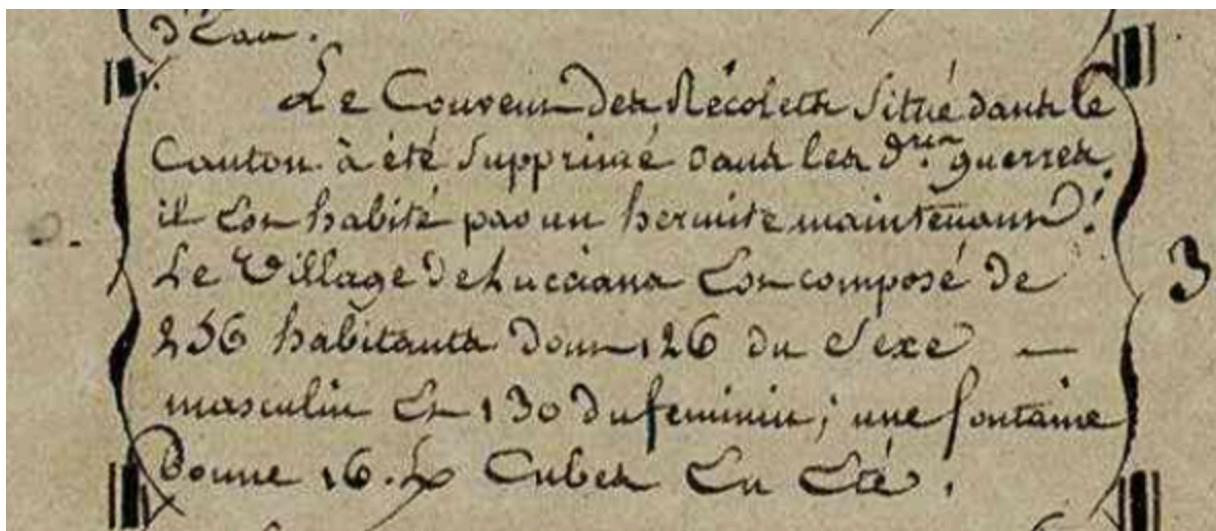 d'Eau.
Le Couvent des Récolets situé dans le
Canton à été supprimé dans les d.res guerres
il est habité par un hermite maintenant.
Le Village de Lucciana est composé de
256 habitants dont 126 du Sexe —
masculin et 130 du feminin; une fontaine
donne 16. Cubes en Eté.
3